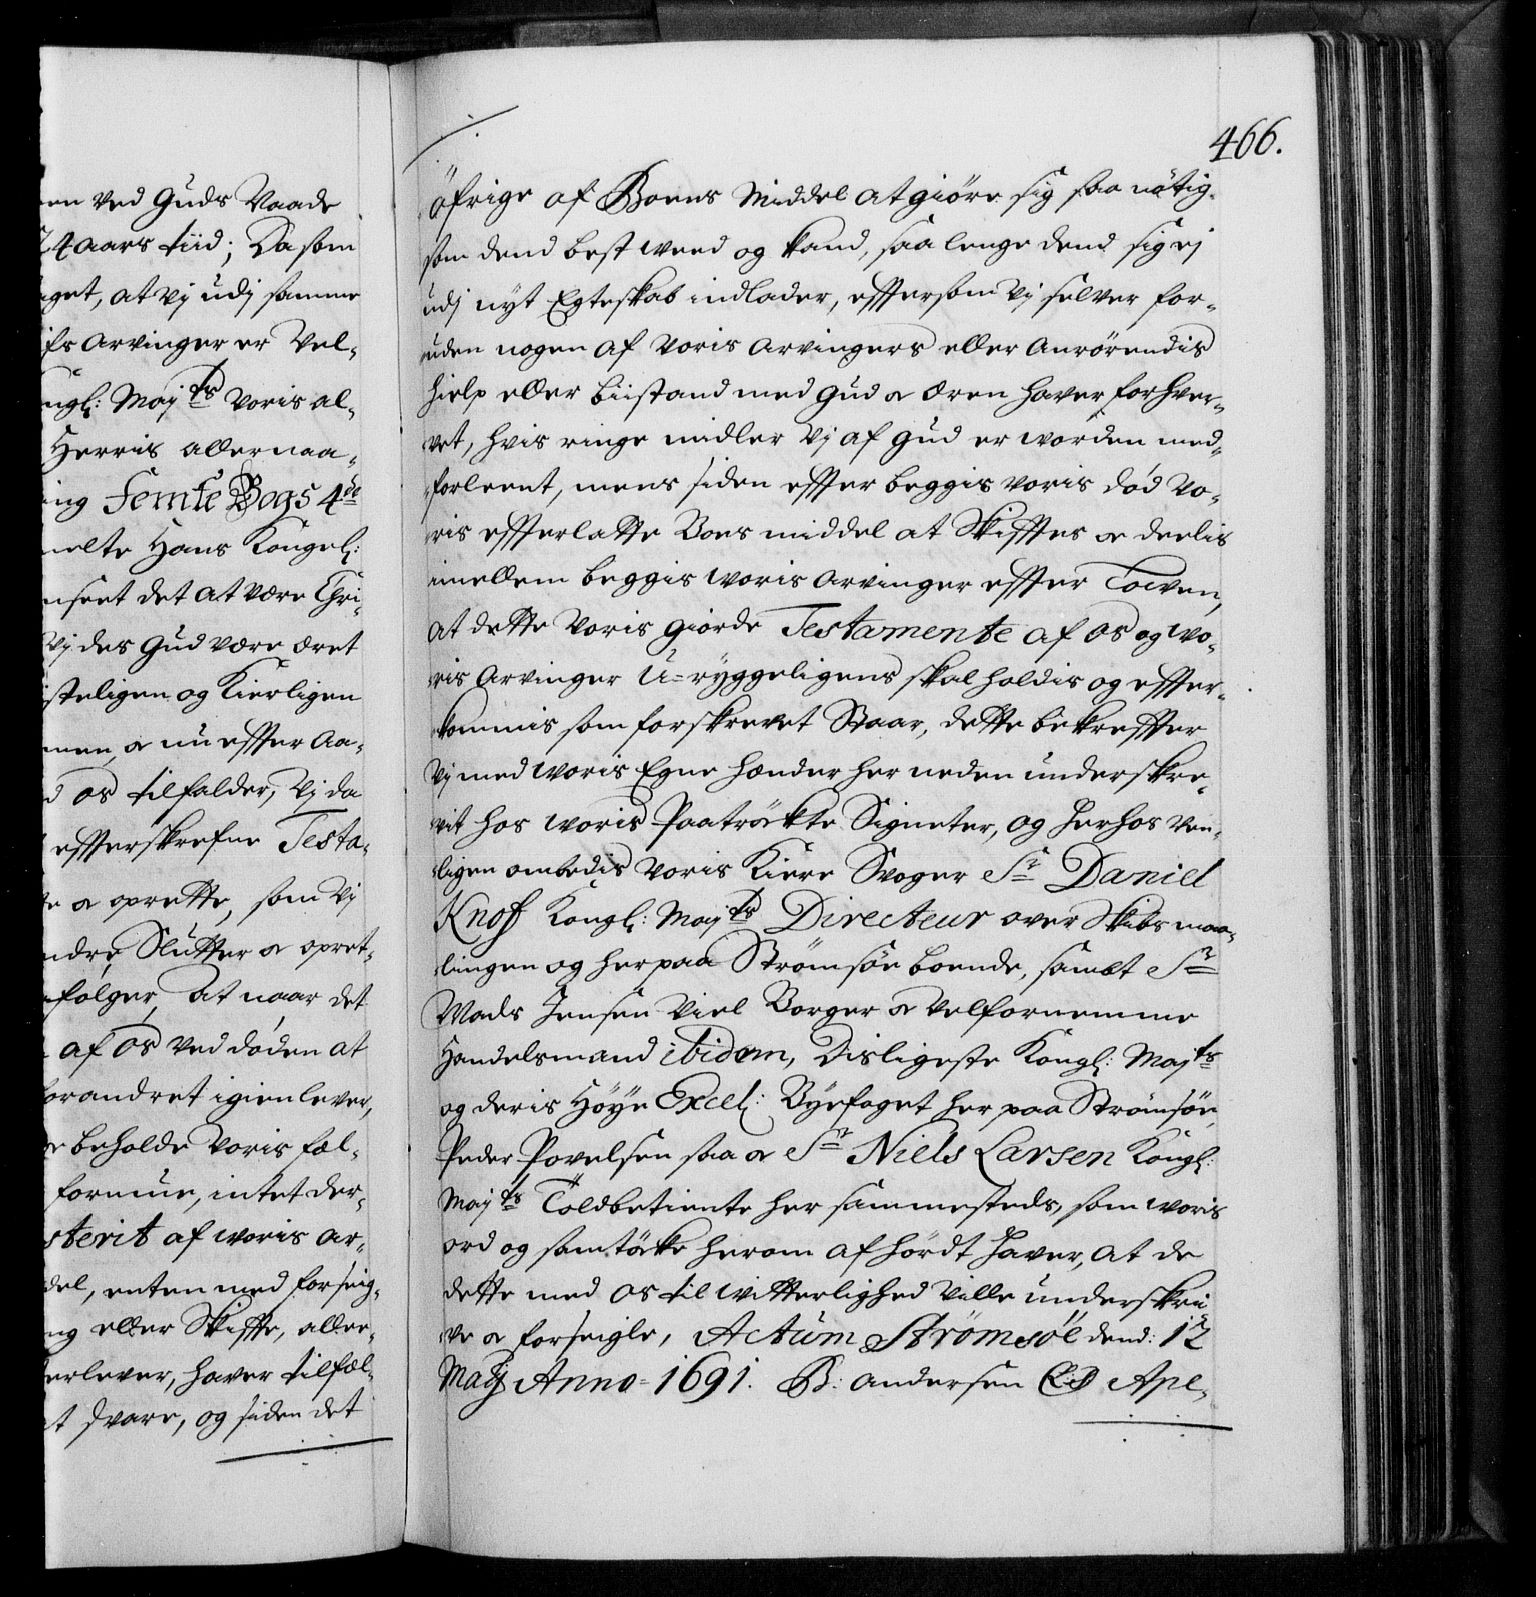 en ved Guds Naade
24 aars tiid; Da som
get, at vj udj samme
fs Arvinger er Vel-
ngl: Mayts voris al-
Herris allernaa-
ing Femte Bogs 4de
melte Hans Kongel:
nseet det at være Chri-
vj des Gud være æret
steligen og Kierligen
men, og nu effter Aa-
d os tilfalder, Vj da
effterskrefne Testa-
te og oprette, som Vj
ndre Slutter og opret-
følger, at naar det
af os ved døden at
orandret igienlever,
beholde voris fæl-
formue, intet der-
sterit af woris Ar-
del, enten med forseig-
ng eller Skiffte, aller-
erlever, haver tilfæl-
t svare, og siden det
466.
øfrige af Boens Middel at giøre sig saa nötig
som dend best weed og kand, saa lenge dend sig ej
udj nyt Egteskab indlader, efftersom Vj selver for-
uden nogen af voris Arvingers eller Anrörendis
hielp eller biistand med Gud og Æren haver forhver-
vet, hvis ringe midler Vj af Gud er worden med-
forleent, mens siden effter beggis voris död vo-
ris effterlatte Boes middel at Skifftes og deelis
imellem beggis woris Arvinger effter Lowen,
at dette voris giorde Testamente af os og wo-
ris Arvinger U-ryggeligens skal holdis og effter-
kommis som forskrevet Staar, dette bekreffter
Vj med woris Egne hænder her neden underskre-
vit hos woris Paatröckte Signeter, og herhos ven-
ligen ombedis voris Kiere Svoger Sr Daniel
Knoff Kongl: Mayts Directeur over Skibs maa-
lingen og her paa Strømsöe boende, sambt Sr
Mads Jensen Viel Borger og velfornemme
Handelsmand ibidem, Disligeste Kongl: Mayts
og deris Höye Excel: Byefoget her paa Strømsöe,
Peder Povelsen saa og Sr Niels Larsen Kongl:
Mayts Toldbetiente her sammesteds, som woris
ord og samtöcke herom af hördt haver, at de
dette med os til witterlighed ville underskri-
ve og forseigle, Actum Strømsöe dend: 12
Maij Anno 1691. B: Andersen LS Apl-